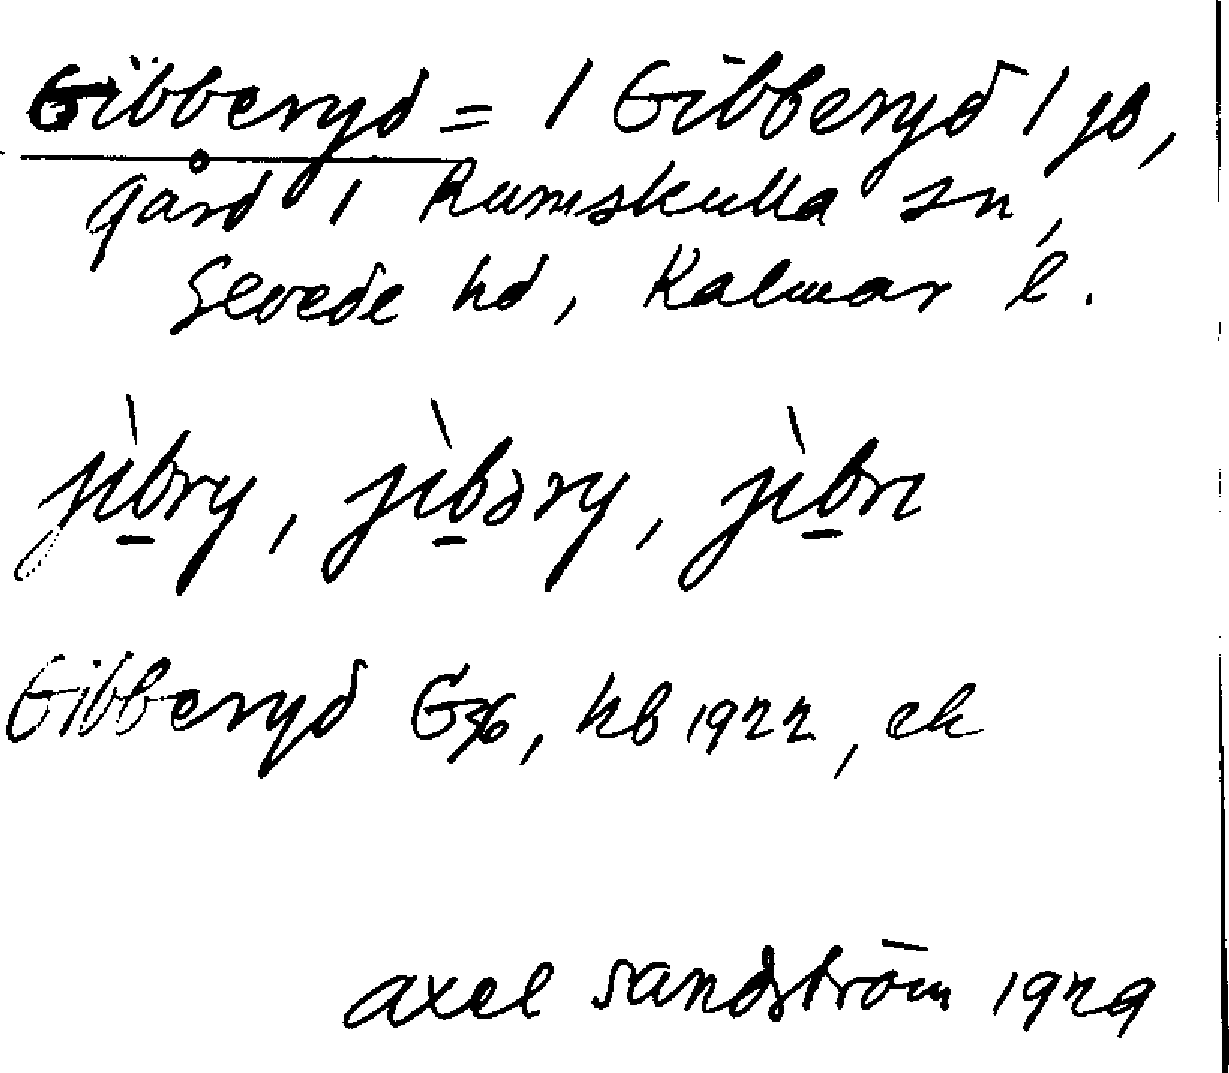 Gibberyd = / Gibberyd / jb,
gård i Rumskulla sn,
Sevede hd, Kalmar l.
jìbry, jìbəry, jìbrı
Gibberyd G36, kb 1922, ek
axel sandström 1929